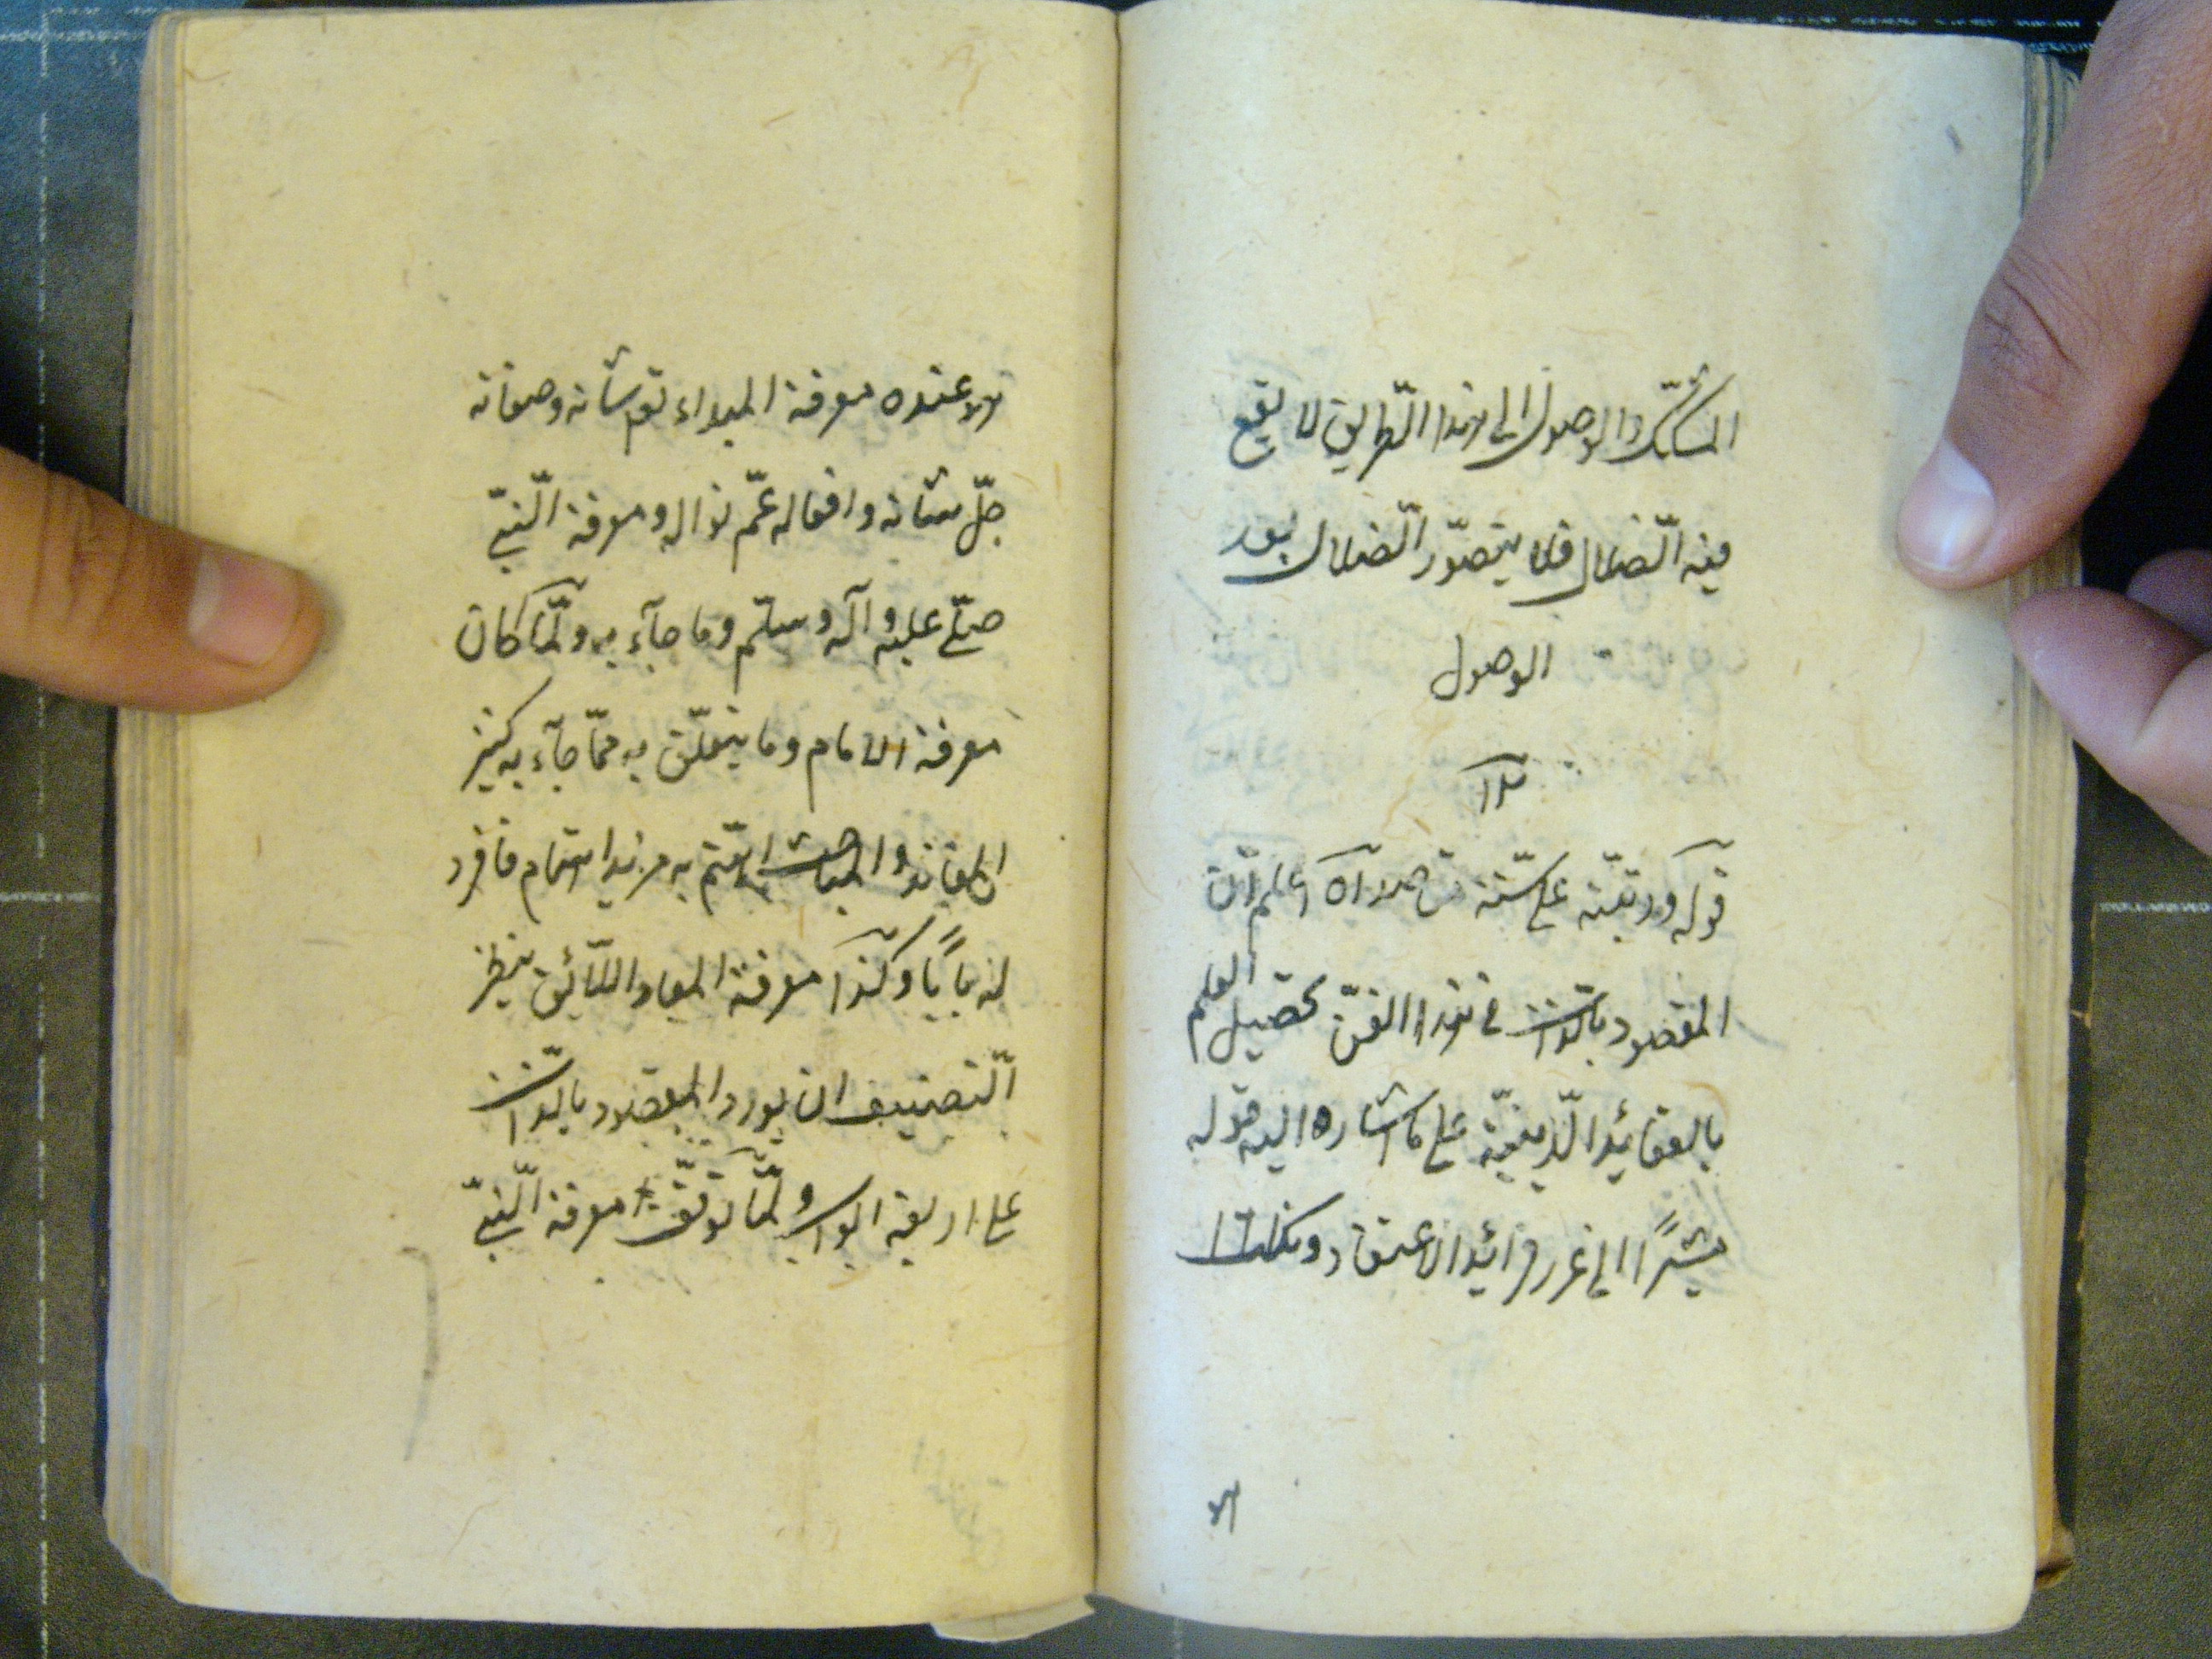 المسالك والوصول الى هذا الطريق لا يقع
فيه الضلال فلا يتصور الضلال بعد
الوصول
قوله ورتبته على ستة مقاصد آه اعلم ان
المقصود بالذات فى هذا الفنّ تحصيل العلم
بالعقائد الدينيّة على ما اشاره اليه قوله
مشيرًا الى غرر فرائد الاعتقاد ونكت
معرفة المبداء تع شانه وصفاته
جلّ شانه وافعاله عمّ نواله ومعرفة النّبىّ
صلّى عليه وآله وسلّم وما جآء به ولمّا كان
معرفة الامام وما يتعلّق به ممّا جآء به كثير
العقائد والمباحث اهتم به مزيد اهتمام فافرد
له بابًا وكذا معرفة المعاد واللّائق بنظر
التّصنيف ان يورد المقصود بالذّات
على اربعة ابواب ولمّا توقّف معرفة النّبىّ